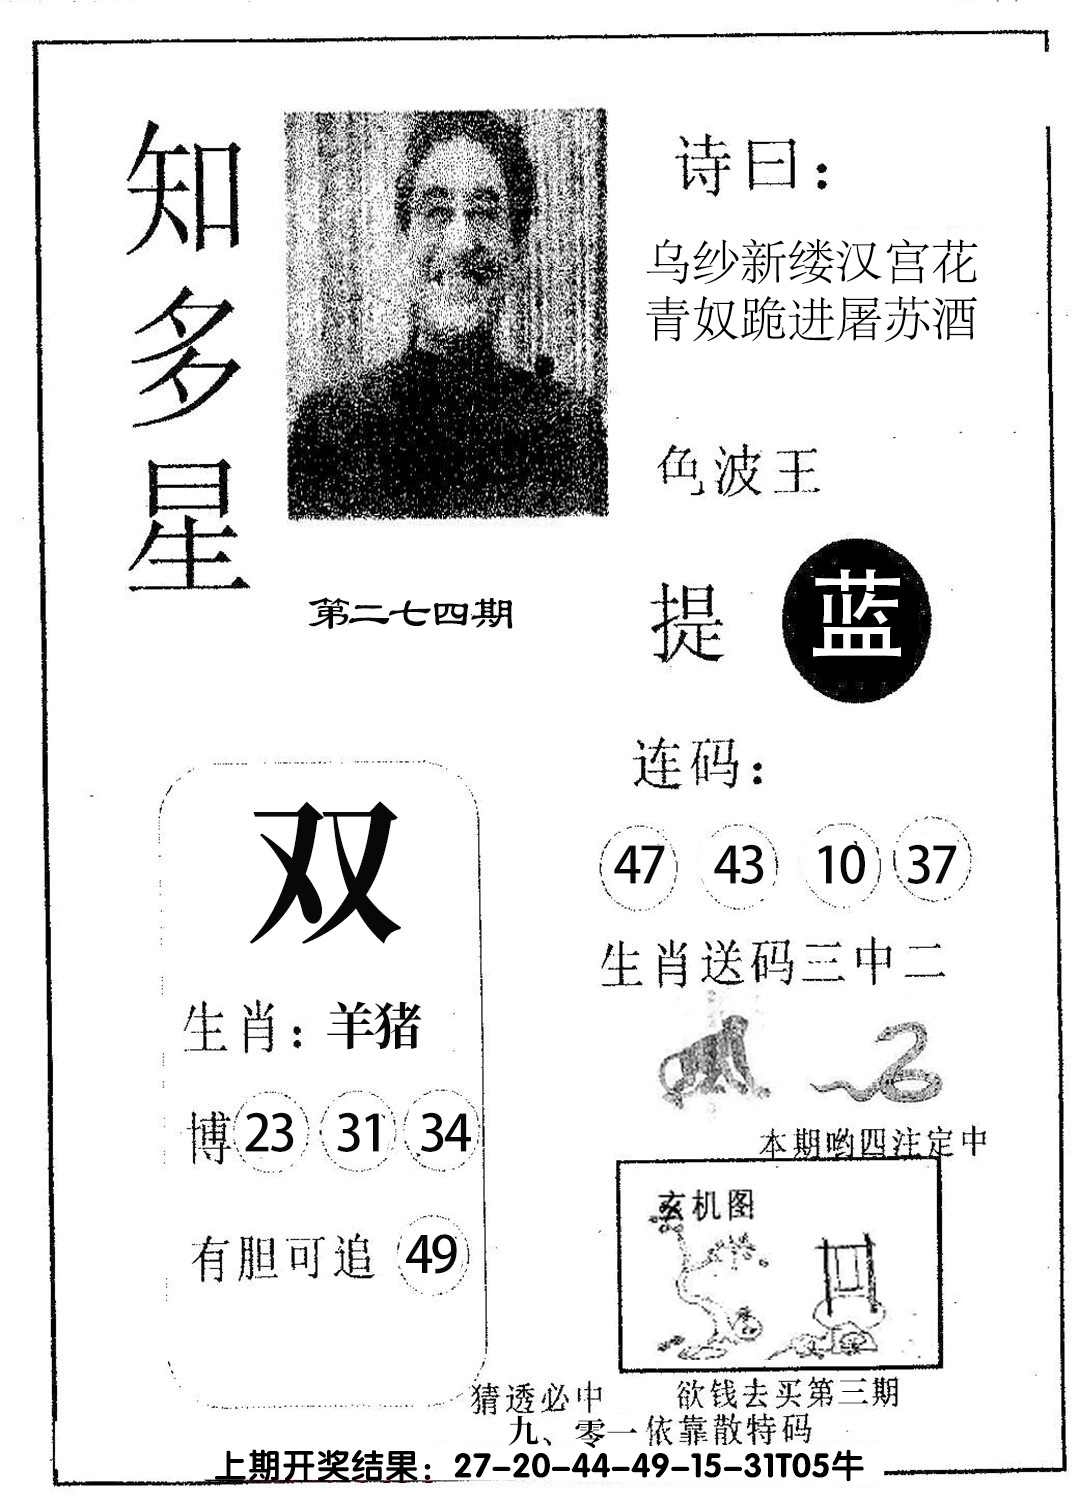 知多星
诗曰：
乌纱新缕汉宫花
青奴跪进屠苏酒
色波王
提 蓝
第二七四期
连码：
47 43 10 37
双
生肖送码三中二
生肖：羊猪
博 23 31 34
本期哟四注定中
玄机图
有胆可追 49
猜透必中 欲钱去买第三期
九、零一依靠散特码
上期开奖结果：27-20-44-49-15-31T05牛